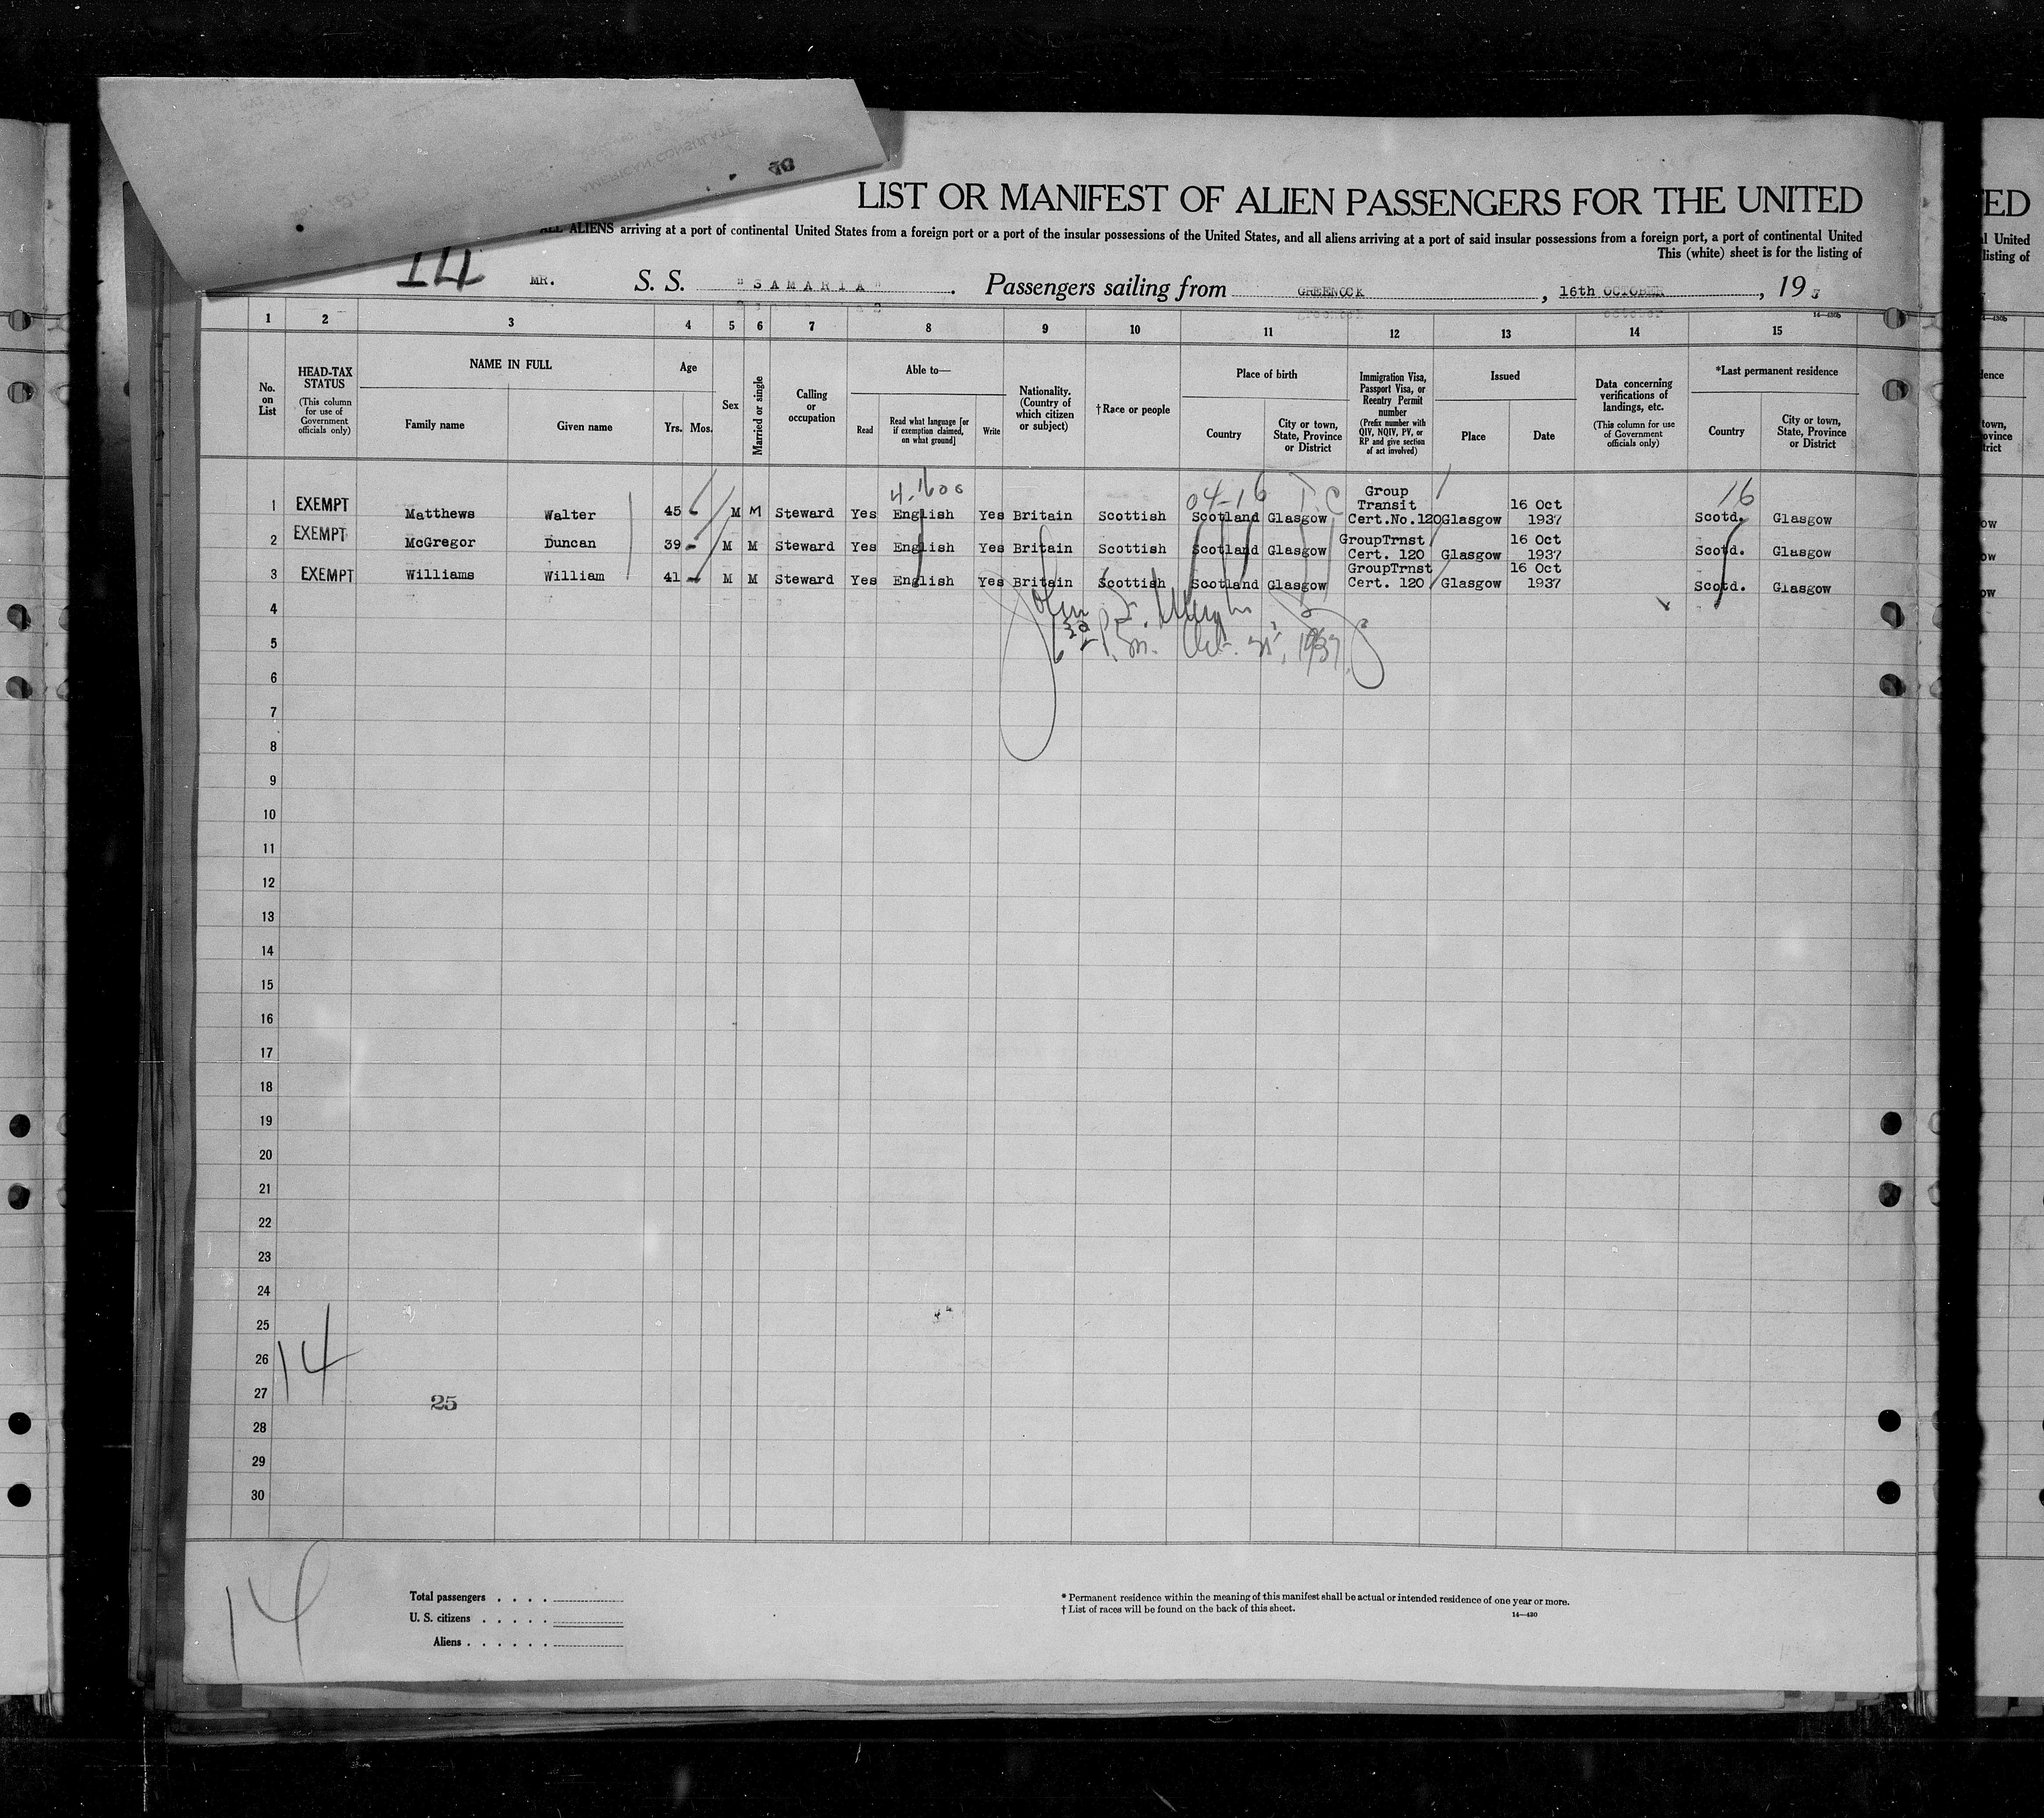 AMERICAN CONSULATE
LIST OR MANIFEST OF ALIEN PASSENGERS FOR THE UNITED
ALL ALIENS arriving at a port of continental United States from a foreign port or a port of the insular possessions of the United States, and all aliens arriving at a port of said insular possessions from a foreign port, a port of continental United
This (white) sheet is for the listing of
14 MR. S. S. "SAMARIA". Passengers sailing from GREENOCK, 16th OCTOBER, 19
14—430b
1 2 3 4 5 6 7 8 9 10 11 12 13 14 15
No. on List
HEAD-TAX STATUS
(This column for use of Government officials only)
NAME IN FULL
Family name
Given name
Age
Yrs. Mos.
Sex
Married or single
Calling or occupation
Able to—
Read
Read what language [or if exemption claimed, on what ground]
Write
Nationality. (Country of which citizen or subject)
†Race or people
Place of birth
Country
City or town, State, Province or District
Immigration Visa, Passport Visa, or Reentry Permit number
(Prefix number with QIV, NQIV, PV, or RP and give section of act involved)
Issued
Place
Date
Data concerning verifications of landings, etc.
(This column for use of Government officials only)
*Last permanent residence
Country
City or town, State, Province or District
04-16 T.C 16
1 EXEMPT Matthews Walter 45 M M Steward Yes English Yes Britain Scottish Scotland Glasgow Group Transit Cert.No.120 Glasgow 16 Oct 1937 Scotd. Glasgow
2 EXEMPT McGregor Duncan 39 M M Steward Yes English Yes Britain Scottish Scotland Glasgow GroupTrnst Cert. 120 Glasgow 16 Oct 1937 Scotd. Glasgow
3 EXEMPT Williams William 41 M M Steward Yes English Yes Britain Scottish Scotland Glasgow GroupTrnst Cert. 120 Glasgow 16 Oct 1937 Scotd. Glasgow
4
John
5
1937
6
7
8
9
10
11
12
13
14
15
16
17
18
19
20
21
22
23
24
25
26
14
27
25
28
29
30
14
Total passengers
U. S. citizens
Aliens
* Permanent residence within the meaning of this manifest shall be actual or intended residence of one year or more.
† List of races will be found on the back of this sheet.
14—430